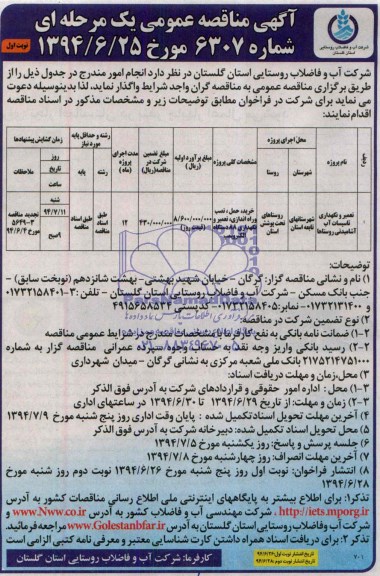 آگهی مناقصه عمومی یک مرحله ای
شماره ۶۳۰۷ مورخ ۱۳۹۴/۶/۲۵
نوبت اول
شرکت آب و فاضلاب روستایی استان گلستان
شرکت آب و فاضلاب روستایی استان گلستان در نظر دارد انجام امور مندرج در جدول ذیل را از
طریق برگزاری مناقصه عمومی به مناقصه گران واجد شرایط واگذار نماید، لذا بدینوسیله دعوت
می نماید برای شرکت در فراخوان مطابق توضیحات زیر و مشخصات مذکور در اسناد مناقصه
اقدام نمایند:
ردیف
نام پروژه
محل اجرای پروژه
شهرستان
روستا
مشخصات کلی پروژه
مبلغ برآورد اولیه (ریال)
مبلغ تضمین شرکت در مناقصه(ریال)
مدت اجرای پروژه (ماه)
رشته و حداقل پایه مورد نیاز
رشته
پایه
زمان گشایش پیشنهادها
روز
تاریخ
ساعت
ملاحظات
تعمیر و نگهداری تاسیسات آب آشامیدنی روستاها
شهرستانهای تابعه استان
روستاهای تحت پوشش
خرید، حمل ، نصب
وراه اندازی، تعمیر و
نگهداری
۸/۶۰۰/۰۰۰/۰۰۰
۴۳۰/۰۰۰/۰۰۰
۱۲
طبق اسناد مناقصه
طبق اسناد مناقصه
۹۴/۷/۱۱
۹صبح
تجدید مناقصه ۵۶۴۹-۳ مورخ ۹۴/۶/۴
توضیحات:
۱) نام و نشانی مناقصه گزار: گرگان – خیابان شهید بهشتی- بهشت شانزدهم (نوبخت سابق) –
جنب بانک مسکن – شرکت آب و فاضلاب روستایی استان گلستان – تلفن :۳-۰۱۷۳۳۱۵۸۴۰۱
و ۰۱۷۳۲۱۳۱۴۰۰ نمابر: ۰۱۷۳۲۱۵۸۴۰۵ کدپستی ۴۹۱۵۶۵۸۵۳۳
۲) نوع تضمین شرکت در مناقصه:
۱-۲) ضمانت نامه بانکی به نفع کارفرما با مشخصات مندرج در شرایط عمومی مناقصه
۲-۲) رسید بانکی واریز وجه نقد به حساب وجوه سپرده عمرانی مناقصه گزار به شماره
۲۱۷۵۲۱۴۷۵۱۰۰۰ بانک ملی شعبه مرکزی به نشانی گرگان – میدان شهرداری
۳) محل،زمان و مهلت دریافت اسناد:
۱-۳) محل : اداره امور حقوقی و قراردادهای شرکت به آدرس فوق الذکر
۲-۳) زمان و مهلت: از تاریخ ۱۳۹۴/۶/۲۹ تا ۱۳۹۴/۶/۳۰ در ساعتهای اداری
۴) آخرین مهلت تحویل اسنادتکمیل شده : پایان وقت اداری روز پنج شنبه مورخ ۱۳۹۴/۷/۹
۵) محل تحویل اسنادتکمیل شده: دبیرخانه شرکت به آدرس فوق الذکر
۶) جلسه پرسش و پاسخ: روز یکشنبه مورخ ۱۳۹۴/۷/۵
۷) آخرین مهلت انصراف: روز چهارشنبه مورخ ۱۳۹۴/۷/۸
۸) انتشار فراخوان: نوبت اول روز پنج شنبه مورخ ۱۳۹۴/۶/۲۶ نوبت دوم روز شنبه مورخ
۱۳۹۴/۶/۲۸
تذکر۱: برای اطلاع بیشتر به پایگاههای اینترنتی ملی اطلاع رسانی مناقصات کشور به آدرس
http://iets.mporg.ir ، شرکت مهندسی آب و فاضلاب کشور به آدرس www.Nww.co.ir و
شرکت آب وفاضلاب روستایی استان گلستان به آدرس www.Golestanbfar.ir مراجعه فرمائید.
تذکر ۲: برای دریافت اسناد همراه داشتن کارت شناسایی معتبر و معرفی نامه کتبی الزامی است
تاریخ انتشار نوبت اول:۹۴/۶/۲۶
تاریخ انتشار نوبت دوم:۹۴/۶/۲۸
کارفرما: شرکت آب و فاضلاب روستایی استان گلستان
۷۰۱